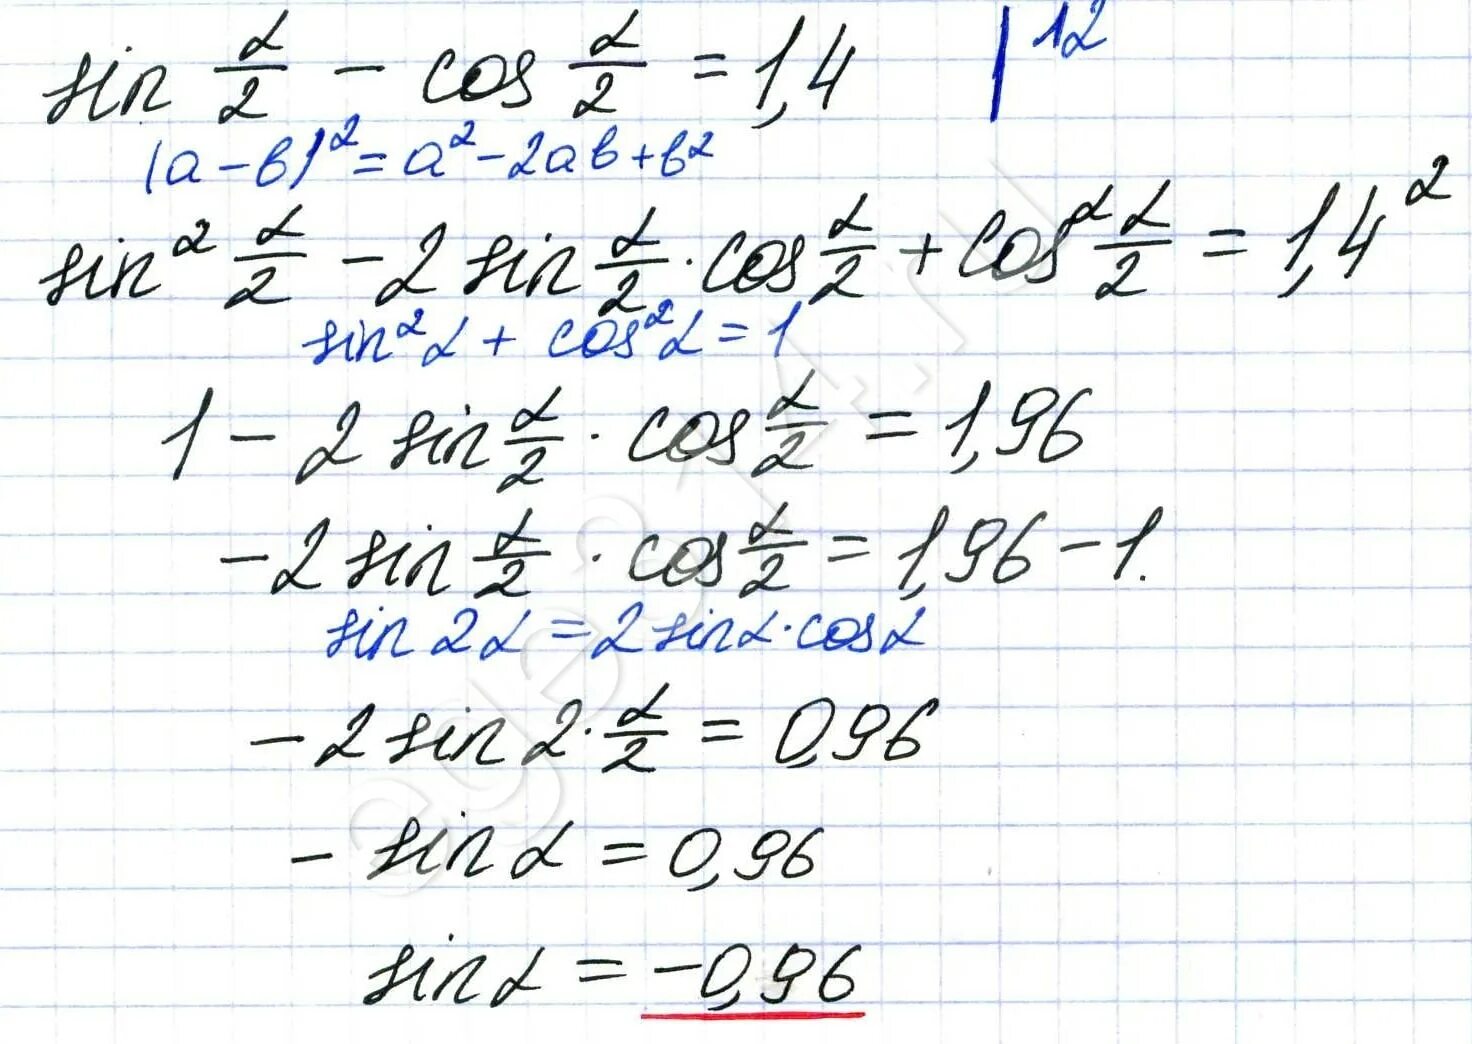 sin α/2 − cos α/2 = 1,4 |↑2
(a − в)² = a² − 2ав + в²
sin² α/2 − 2 sin α/2 · cos α/2 + cos² α/2 = 1,4²
sin²α + cos²α = 1
1 − 2 sin α/2 · cos α/2 = 1,96
− 2 sin α/2 · cos α/2 = 1,96 − 1.
sin 2α = 2 sinα · cosα
− 2 sin 2 · α/2 = 0,96
− sin α = 0,96
sin α = −0,96
ege314.ru